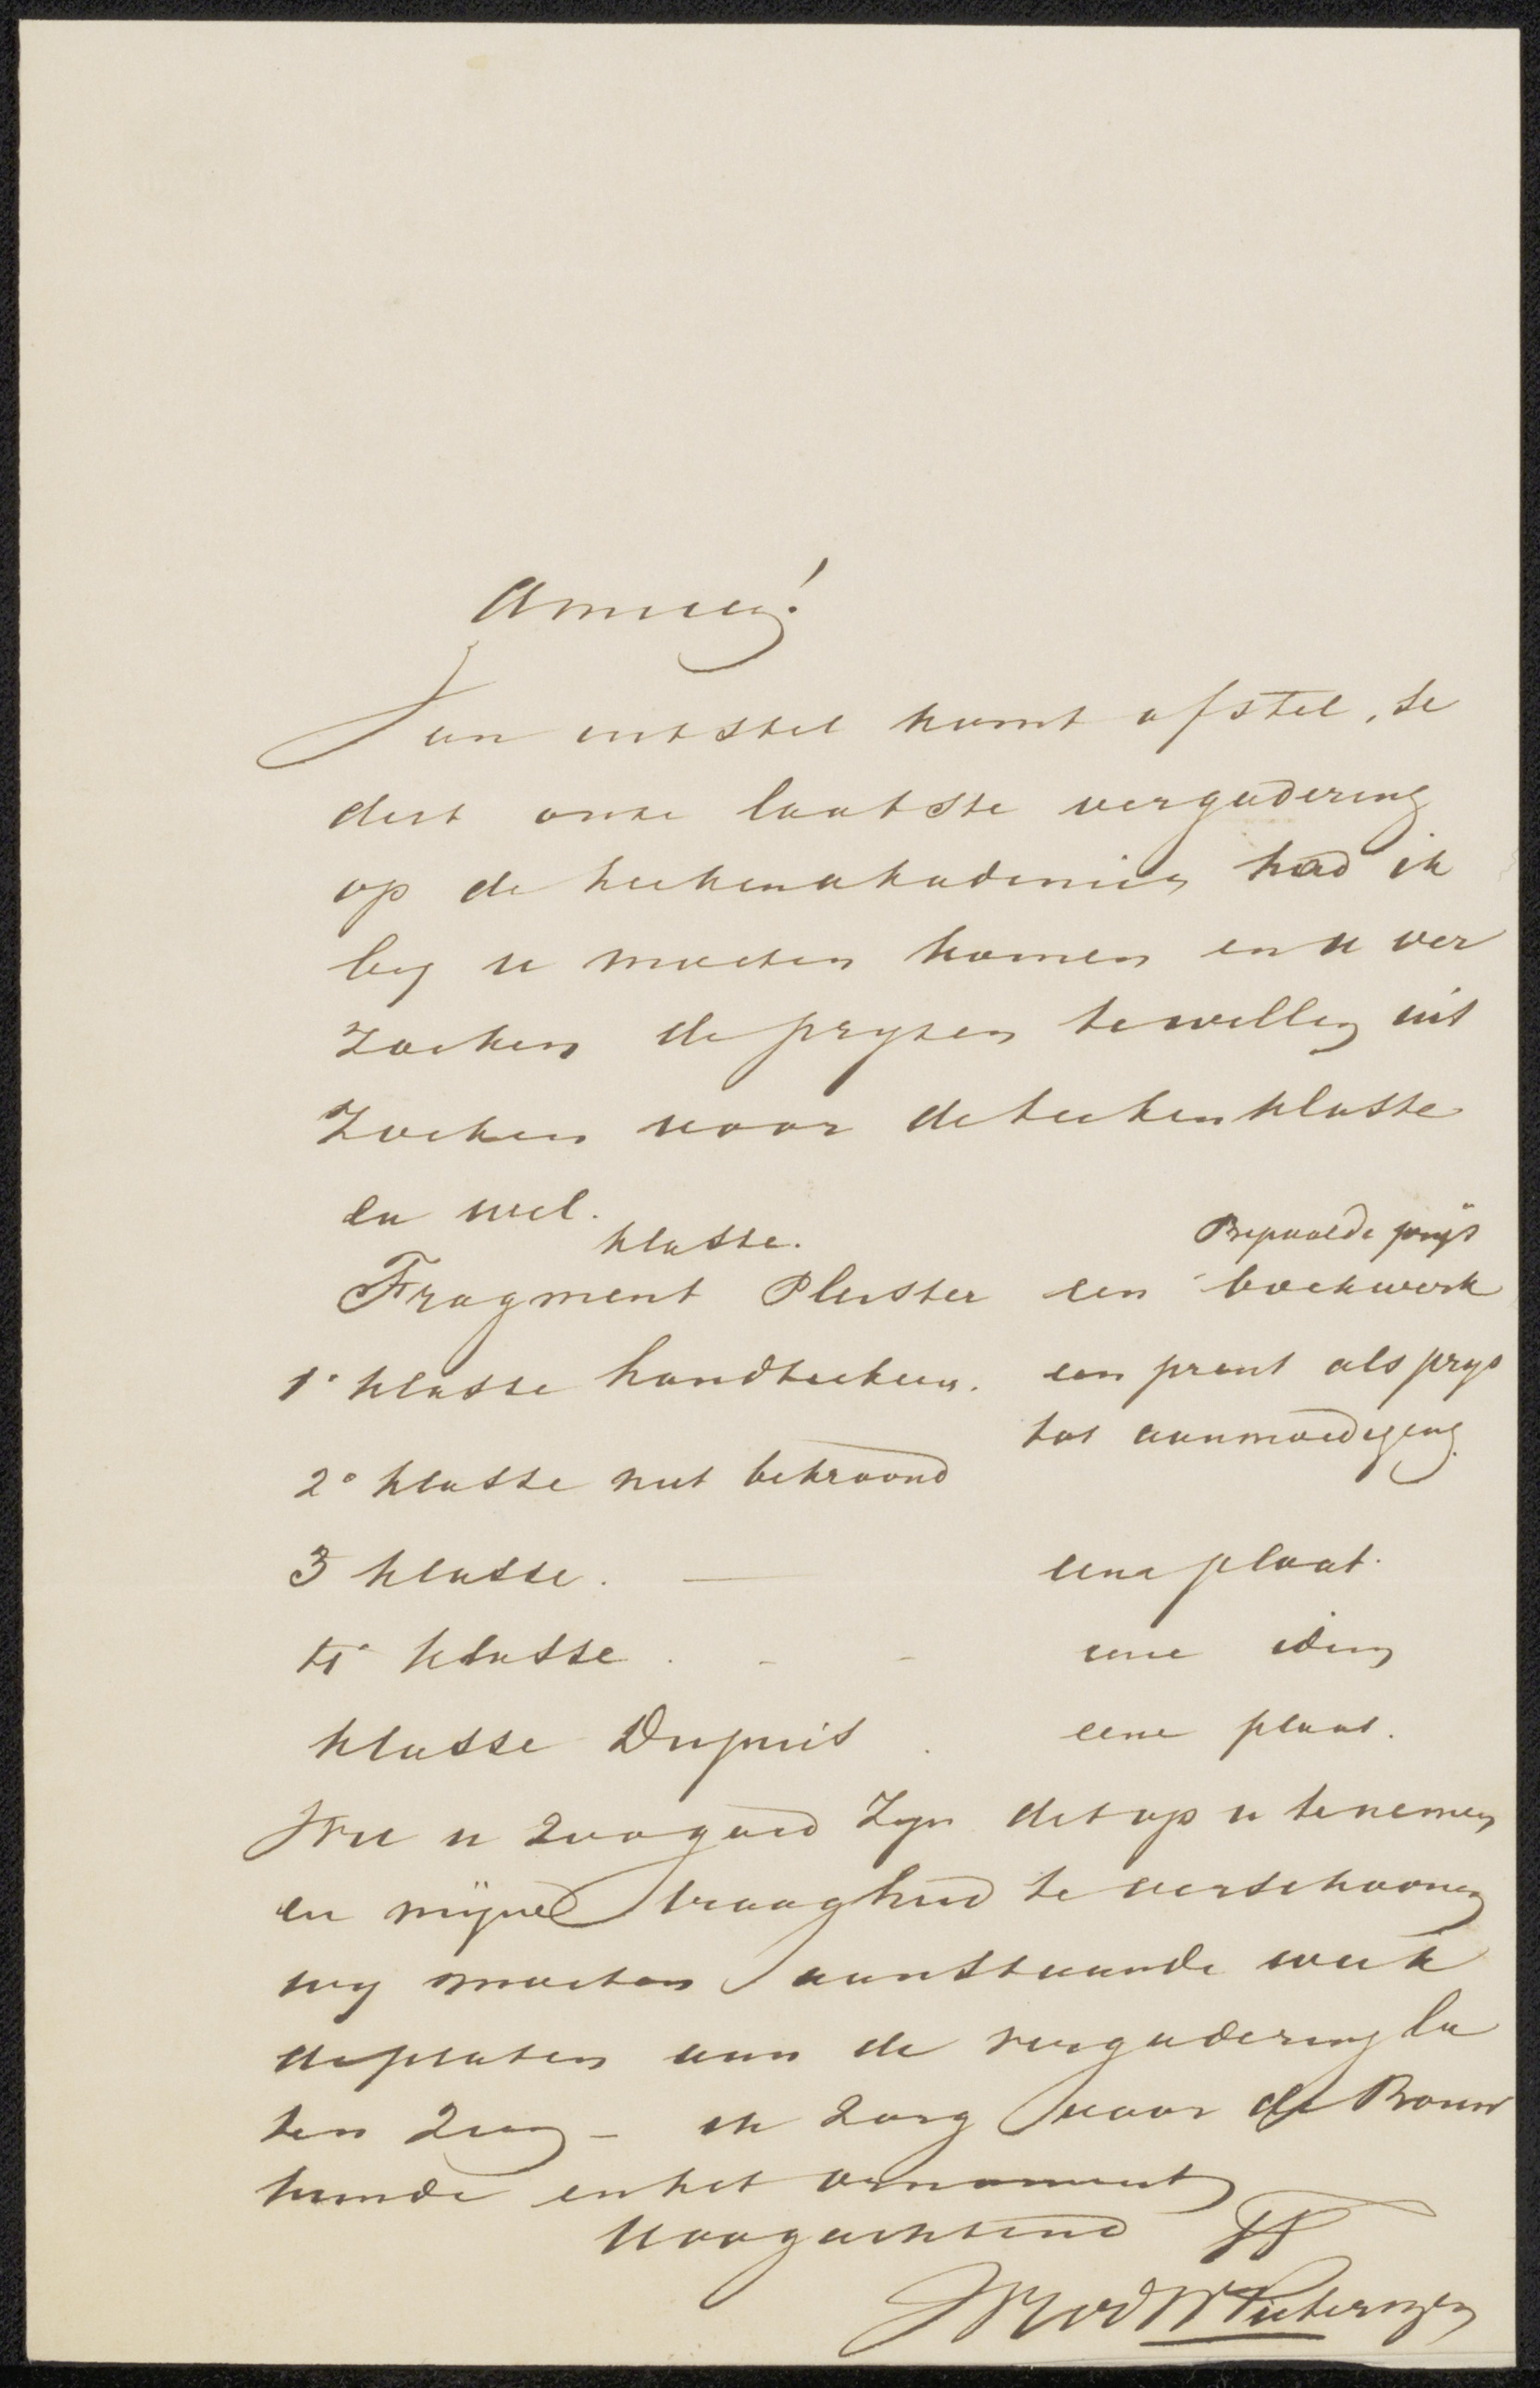 Amice!
Van uitstel komt afstel, se
dert onze laatste vergadering
op de teekenakademie had ik
by u moeten komen en u ver
zoeken de pryzen te willen uit
zoeken voor de teekenklasse
en wel.
klasse. Bepaalde prijs
Fragment Pleister een boekwerk
1e klasse handteeken. een prent als prys
tot aanmoediging
2e klasse niet bekroond
3 klasse. — eene plaat.
4e klasse . - - eene idem
klasse Dupuis . eene plaat.
Wil u zoo goed zyn dit op u te nemen
en mijne traagheid te verschoonen
wy moeten aanstaande week
de platen aan de vergadering la
ten zien – ik zorg voor de Bouw
kunde en het ornament
Hoogachtend
Pieterszen